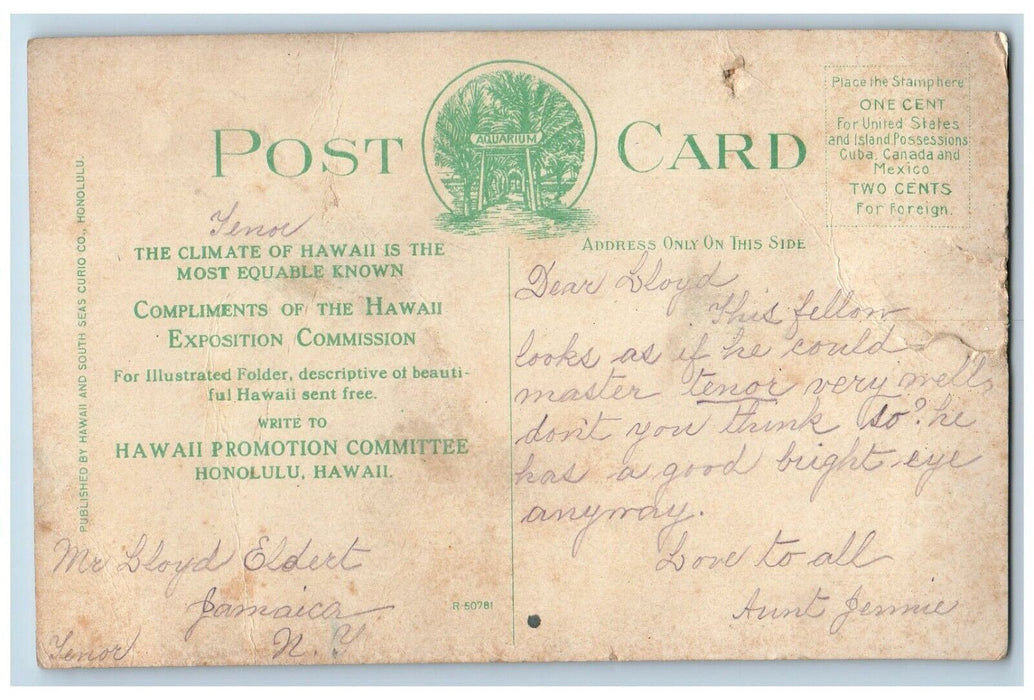 POST CARD
AQUARIUM
Place the Stamp here
ONE CENT
For United States
and Island Possessions
Cuba, Canada and
Mexico
TWO CENTS
For Foreign.
PUBLISHED BY HAWAII AND SOUTH SEAS CURIO CO., HONOLULU.
Tenor
THE CLIMATE OF HAWAII IS THE
MOST EQUABLE KNOWN
COMPLIMENTS OF THE HAWAII
EXPOSITION COMMISSION
For Illustrated Folder, descriptive of beauti-
ful Hawaii sent free.
WRITE TO
HAWAII PROMOTION COMMITTEE
HONOLULU, HAWAII.
Mr Lloyd Eldert
Jamaica
N. Y
Tenor
R-50781
ADDRESS ONLY ON THIS SIDE
Dear Lloyd
This fellow
looks as if he could
master tenor very well,
don't you think so? he
has a good bright eye
anyway.
Love to all
Aunt Jennie